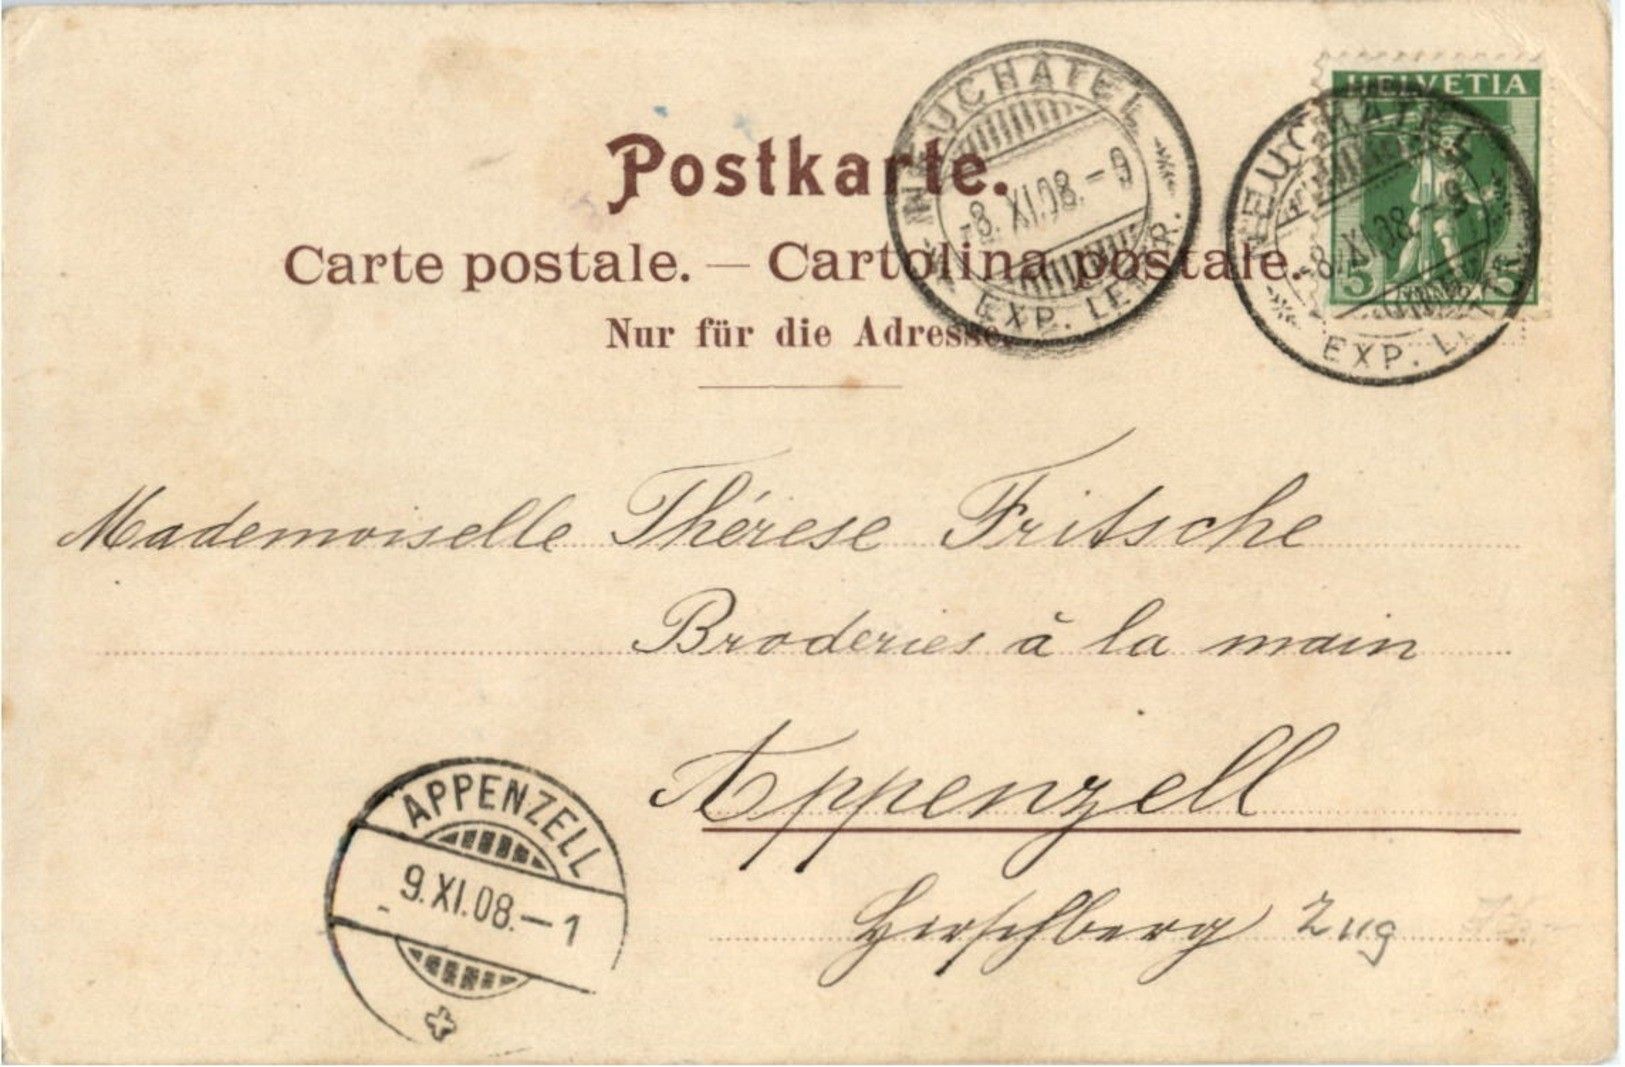 HELVETIA
5 5
NEUCHÂTEL
8. XI.08.-9
EXP. LETTR.
NEUCHÂTEL
8. XI.08.-9
EXP. LETTR.
Postkarte.
Carte postale. — Cartolina postale.
Nur für die Adresse.
Mademoiselle Thérese Fritsche
Broderies à la main
Appenzell
Hirschberg
Zug
APPENZELL
9. XI.08.-1